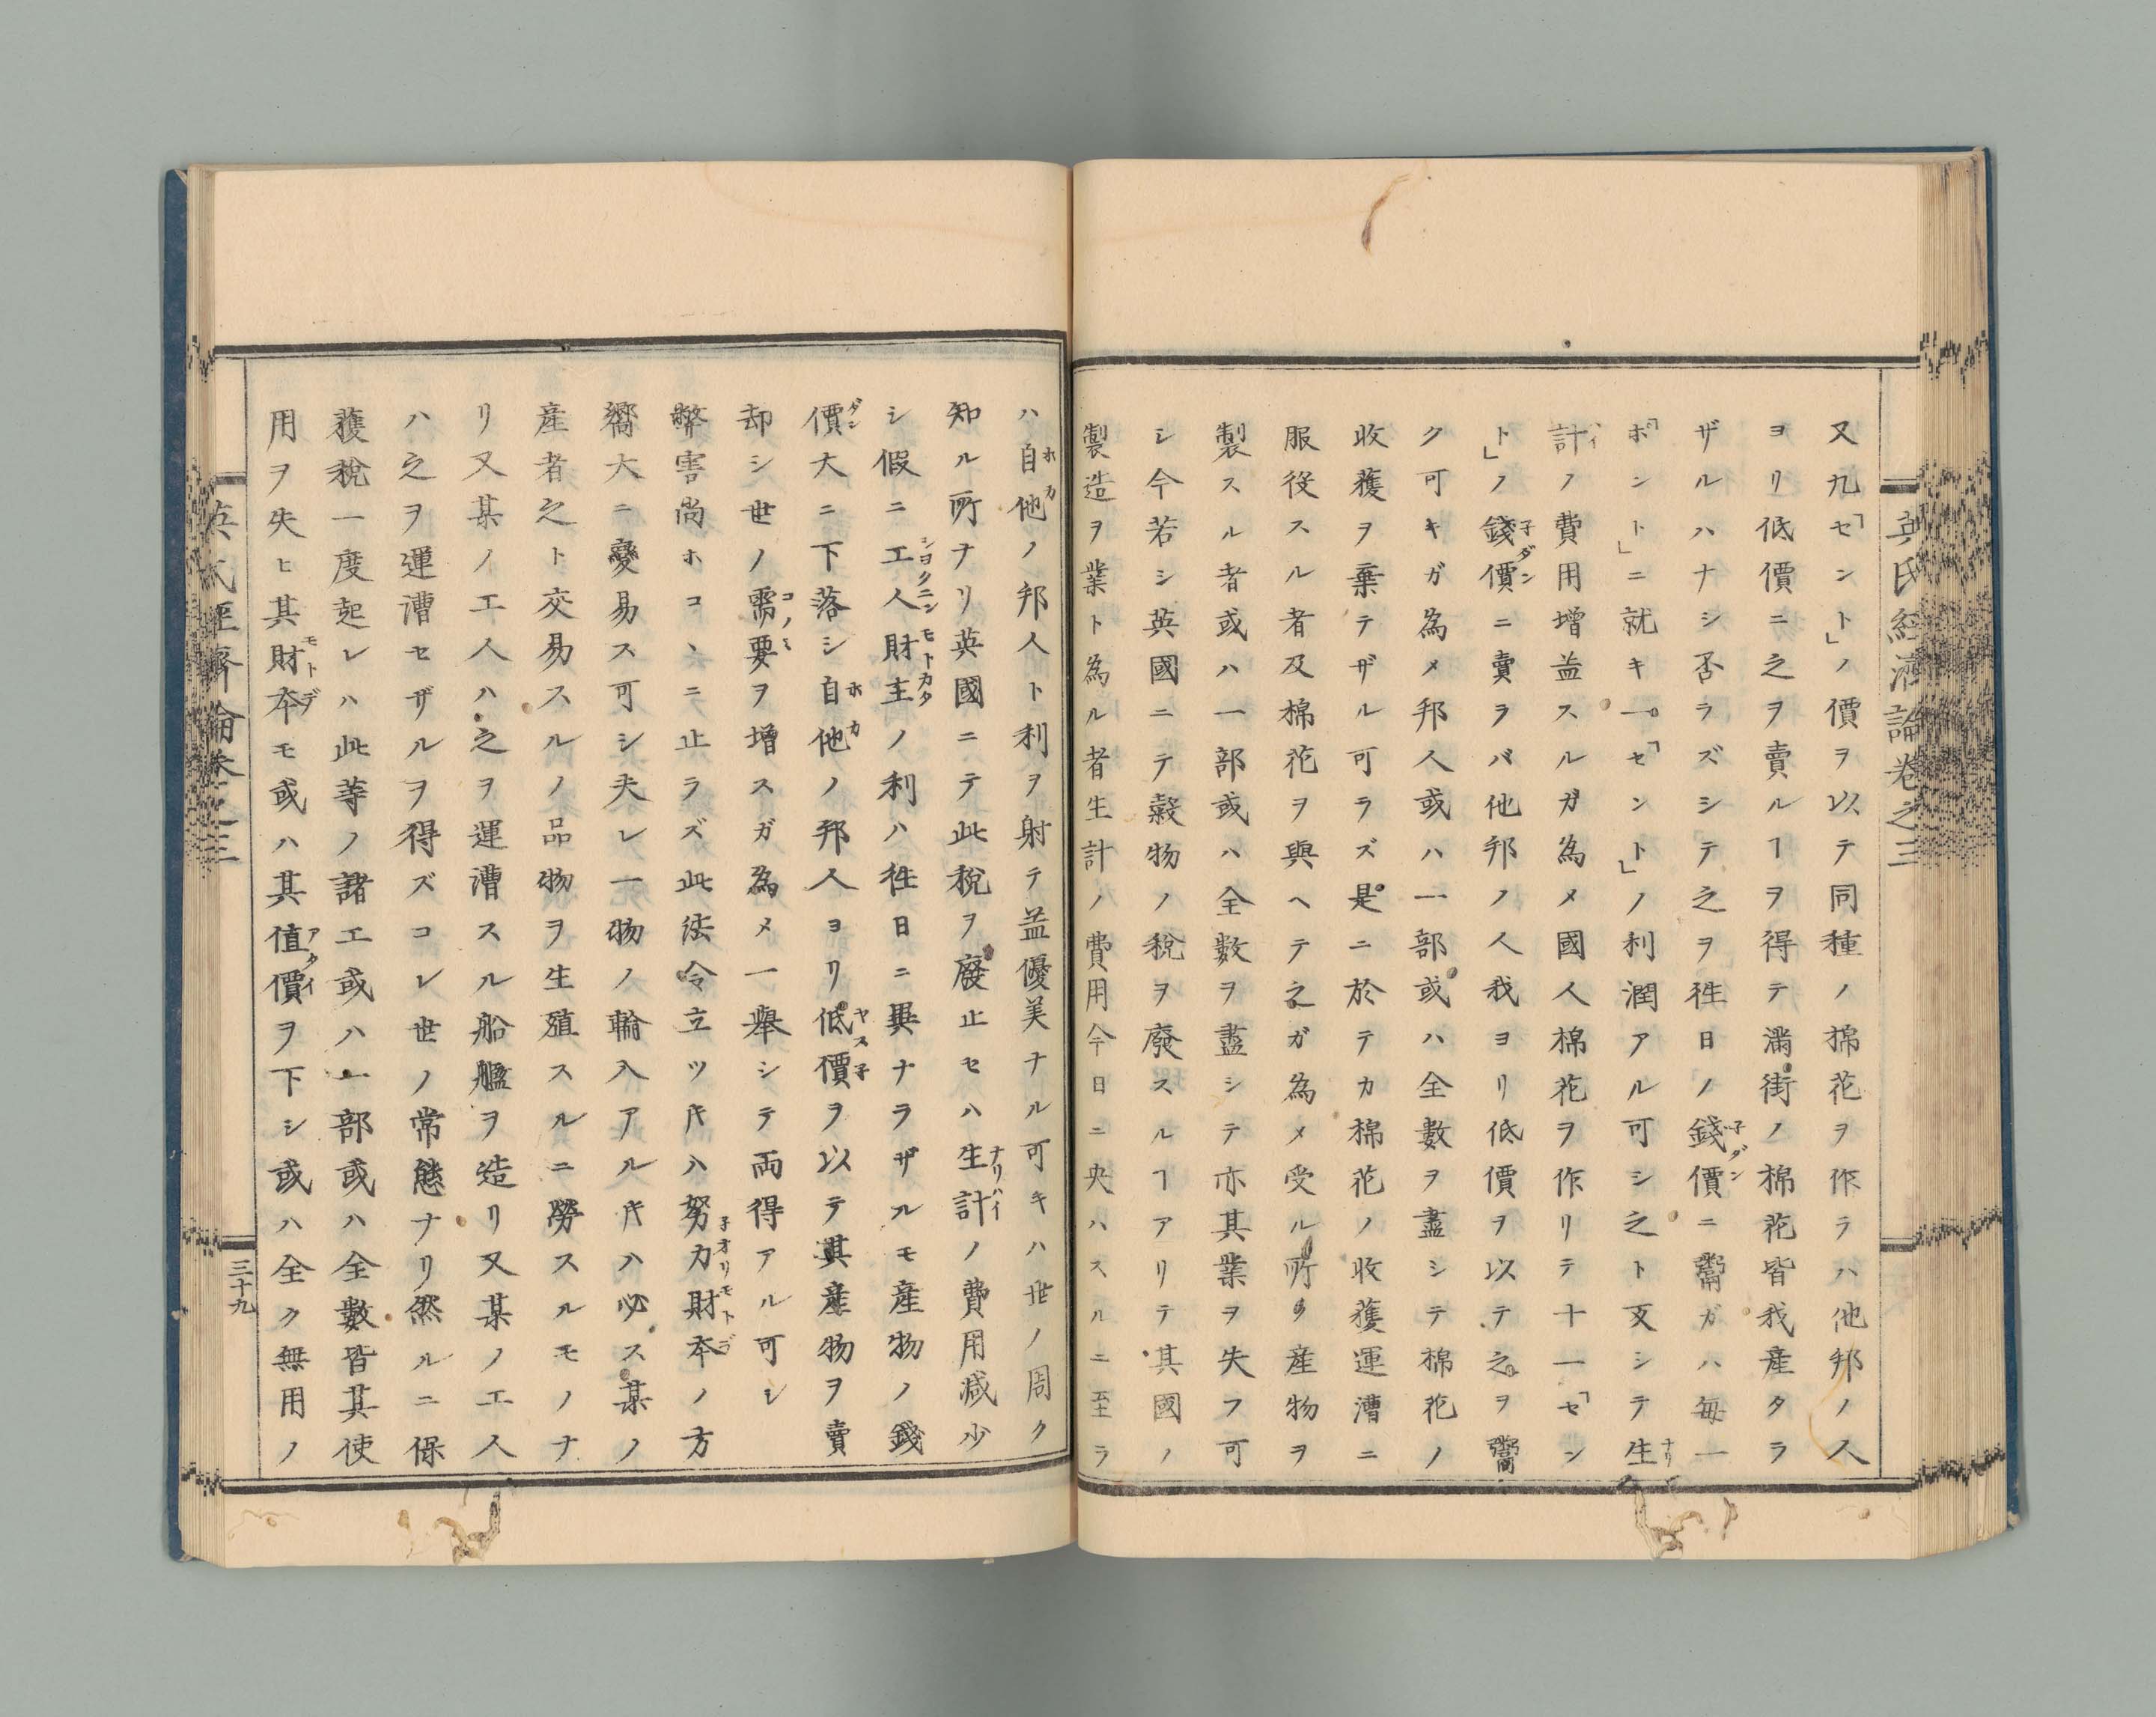 英氏經濟論卷之三
又九「セント」ノ價ヲ以テ同種ノ棉花ヲ作ラハ他邦ノ人
ヨリ低價ニ之ヲ賣ルヿヲ得テ滿街ノ棉花皆我産タラ
ザルハナシ否ラズシテ之ヲ徃日ノ錢價子ダンニ鬻ガハ毎一
「ポント」ニ就キ一「セント」ノ利潤アル可シ之ト反シテ生ナリ
計ハイノ費用増益スルガ為メ國人棉花ヲ作リテ十一「セン
ト」ノ錢價子ダンニ賣ラバ他邦ノ人我ヨリ低價ヲ以テ之ヲ鬻
ク可キガ為メ邦人或ハ一部或ハ全數ヲ盡シテ棉花ノ
收穫ヲ棄テザル可ラズ是ニ於テカ棉花ノ收穫運漕ニ
服役スル者及棉花ヲ與ヘテ之ガ為メ受ル所ノ産物ヲ
製スル者或ハ一部或ハ全數ヲ盡シテ亦其業ヲ失フ可
シ今若シ英國ニテ穀物ノ稅ヲ廢スルヿアリテ其國ノ
製造ヲ業ト為ル者生計ノ費用今日ニ央ハスルニ至ラ
ハ自他ホカノ邦人ト利ヲ射テ益優美ナル可キハ世ノ周ク
知ル所ナリ英國ニテ此稅ヲ廢止セハ生計ナリハイノ費用減少
シ假ニ工人シヨクニン財主モトカタノ利ハ徃日ニ異ナラザルモ産物ノ錢
價ダン大ニ下落シ自他ホカノ邦人ヨリ低價ヤス子ヲ以テ其産物ヲ賣
却シ世ノ需要コノミヲ增スガ為メ一擧シテ両得アル可シ
弊害尚ホコヽニテ止ラズ此法令立ツ㐧ハ努力子オリ財本モトデノ方
嚮大ニ變易ス可シ夫レ一物ノ輸入アル㐧ハ必ス某ノ
産者之ト交易スルノ品物ヲ生殖スルニ勞スルモノナ
リ又某ノ工人ハ之ヲ運漕スル船艦ヲ造リ又某ノ工人
ハ之ヲ運漕セザルヲ得ズコレ世ノ常態ナリ然ルニ保
護稅一度起レハ此等ノ諸工或ハ一部或ハ全數皆其使
用ヲ失ヒ其財本モトデモ或ハ其値價アタイヲ下シ或ハ全ク無用ノ
英氏經濟論卷之三
三十九